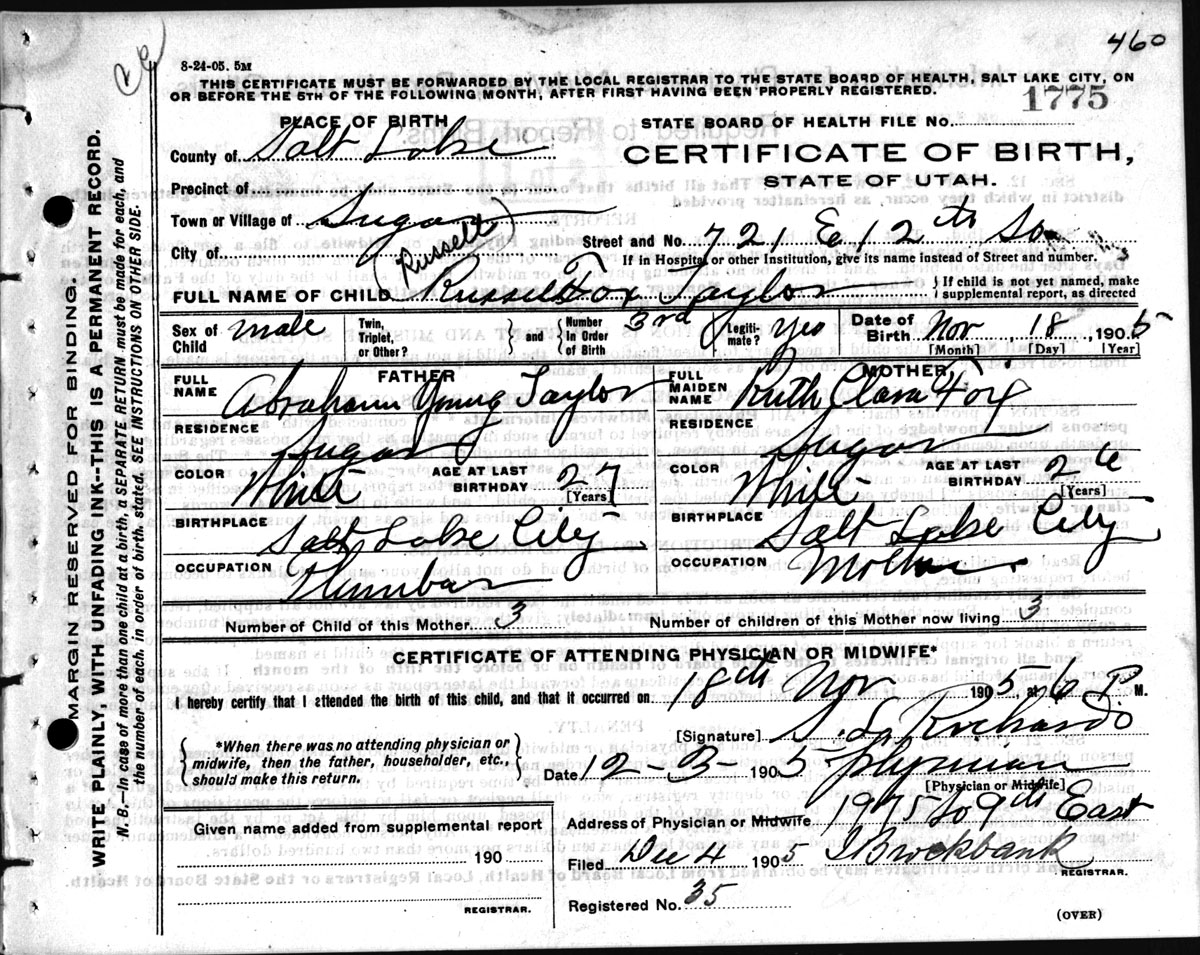 460
8-24-05. 5M
THIS CERTIFICATE MUST BE FORWARDED BY THE LOCAL REGISTRAR TO THE STATE BOARD OF HEALTH, SALT LAKE CITY, ON
OR BEFORE THE 5TH OF THE FOLLOWING MONTH, AFTER FIRST HAVING BEEN PROPERLY REGISTERED.
1775
PLACE OF BIRTH
STATE BOARD OF HEALTH FILE NO.
County of Salt Lake
CERTIFICATE OF BIRTH,
STATE OF UTAH.
Precinct of
Town or Village of Sugar
City of
Street and No. 721 E 12th So
If in Hospital or other Institution, give its name instead of Street and number.
(Russell)
FULL NAME OF CHILD Russell Fox Taylor
If child is not yet named, make
supplemental report, as directed
Sex of Child male
Twin, Triplet, or Other? and Number In Order of Birth 3rd
Legitimate? yes
Date of Birth Nov 18 1905
[Month] [Day] [Year]
FATHER
FULL NAME Abraham Young Taylor
MOTHER
FULL MAIDEN NAME Ruth Clara Fox
RESIDENCE Sugar
RESIDENCE Sugar
COLOR White AGE AT LAST BIRTHDAY 27 [Years]
COLOR White AGE AT LAST BIRTHDAY 26 [Years]
BIRTHPLACE Salt Lake City
BIRTHPLACE Salt Lake City
OCCUPATION Plumber
OCCUPATION Mother
Number of Child of this Mother 3
Number of children of this Mother now living 3
CERTIFICATE OF ATTENDING PHYSICIAN OR MIDWIFE*
I hereby certify that I attended the birth of this child, and that it occurred on 18th Nov 1905, at 6 P M.
*When there was no attending physician or
midwife, then the father, householder, etc.,
should make this return.
[Signature] S. L. Richards
Date 12-3-1905 physician
[Physician or Midwife]
Address of Physician or Midwife 1975 So 9th East
Given name added from supplemental report
190
REGISTRAR.
Filed Dec 4 1905 Brockbank
REGISTRAR.
Registered No. 35
(OVER)
MARGIN RESERVED FOR BINDING.
WRITE PLAINLY, WITH UNFADING INK--THIS IS A PERMANENT RECORD.
N. B.—In case of more than one child at birth, a SEPARATE RETURN must be made for each, and
the number of each, in order of birth, stated. SEE INSTRUCTIONS ON OTHER SIDE.